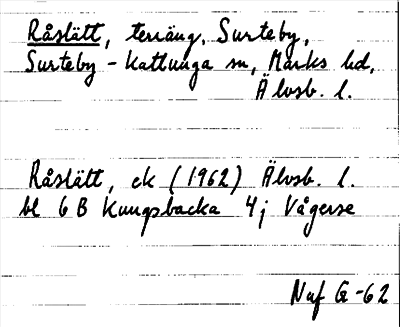 Råslätt, terräng, Surteby,
Surteby-Kattunga sn, Marks hd,
Älvsb. l.
Råslätt, ek (1962) Älvsb. l.
bl 6 B Kungsbacka 4j Vågerse
Naf G-62